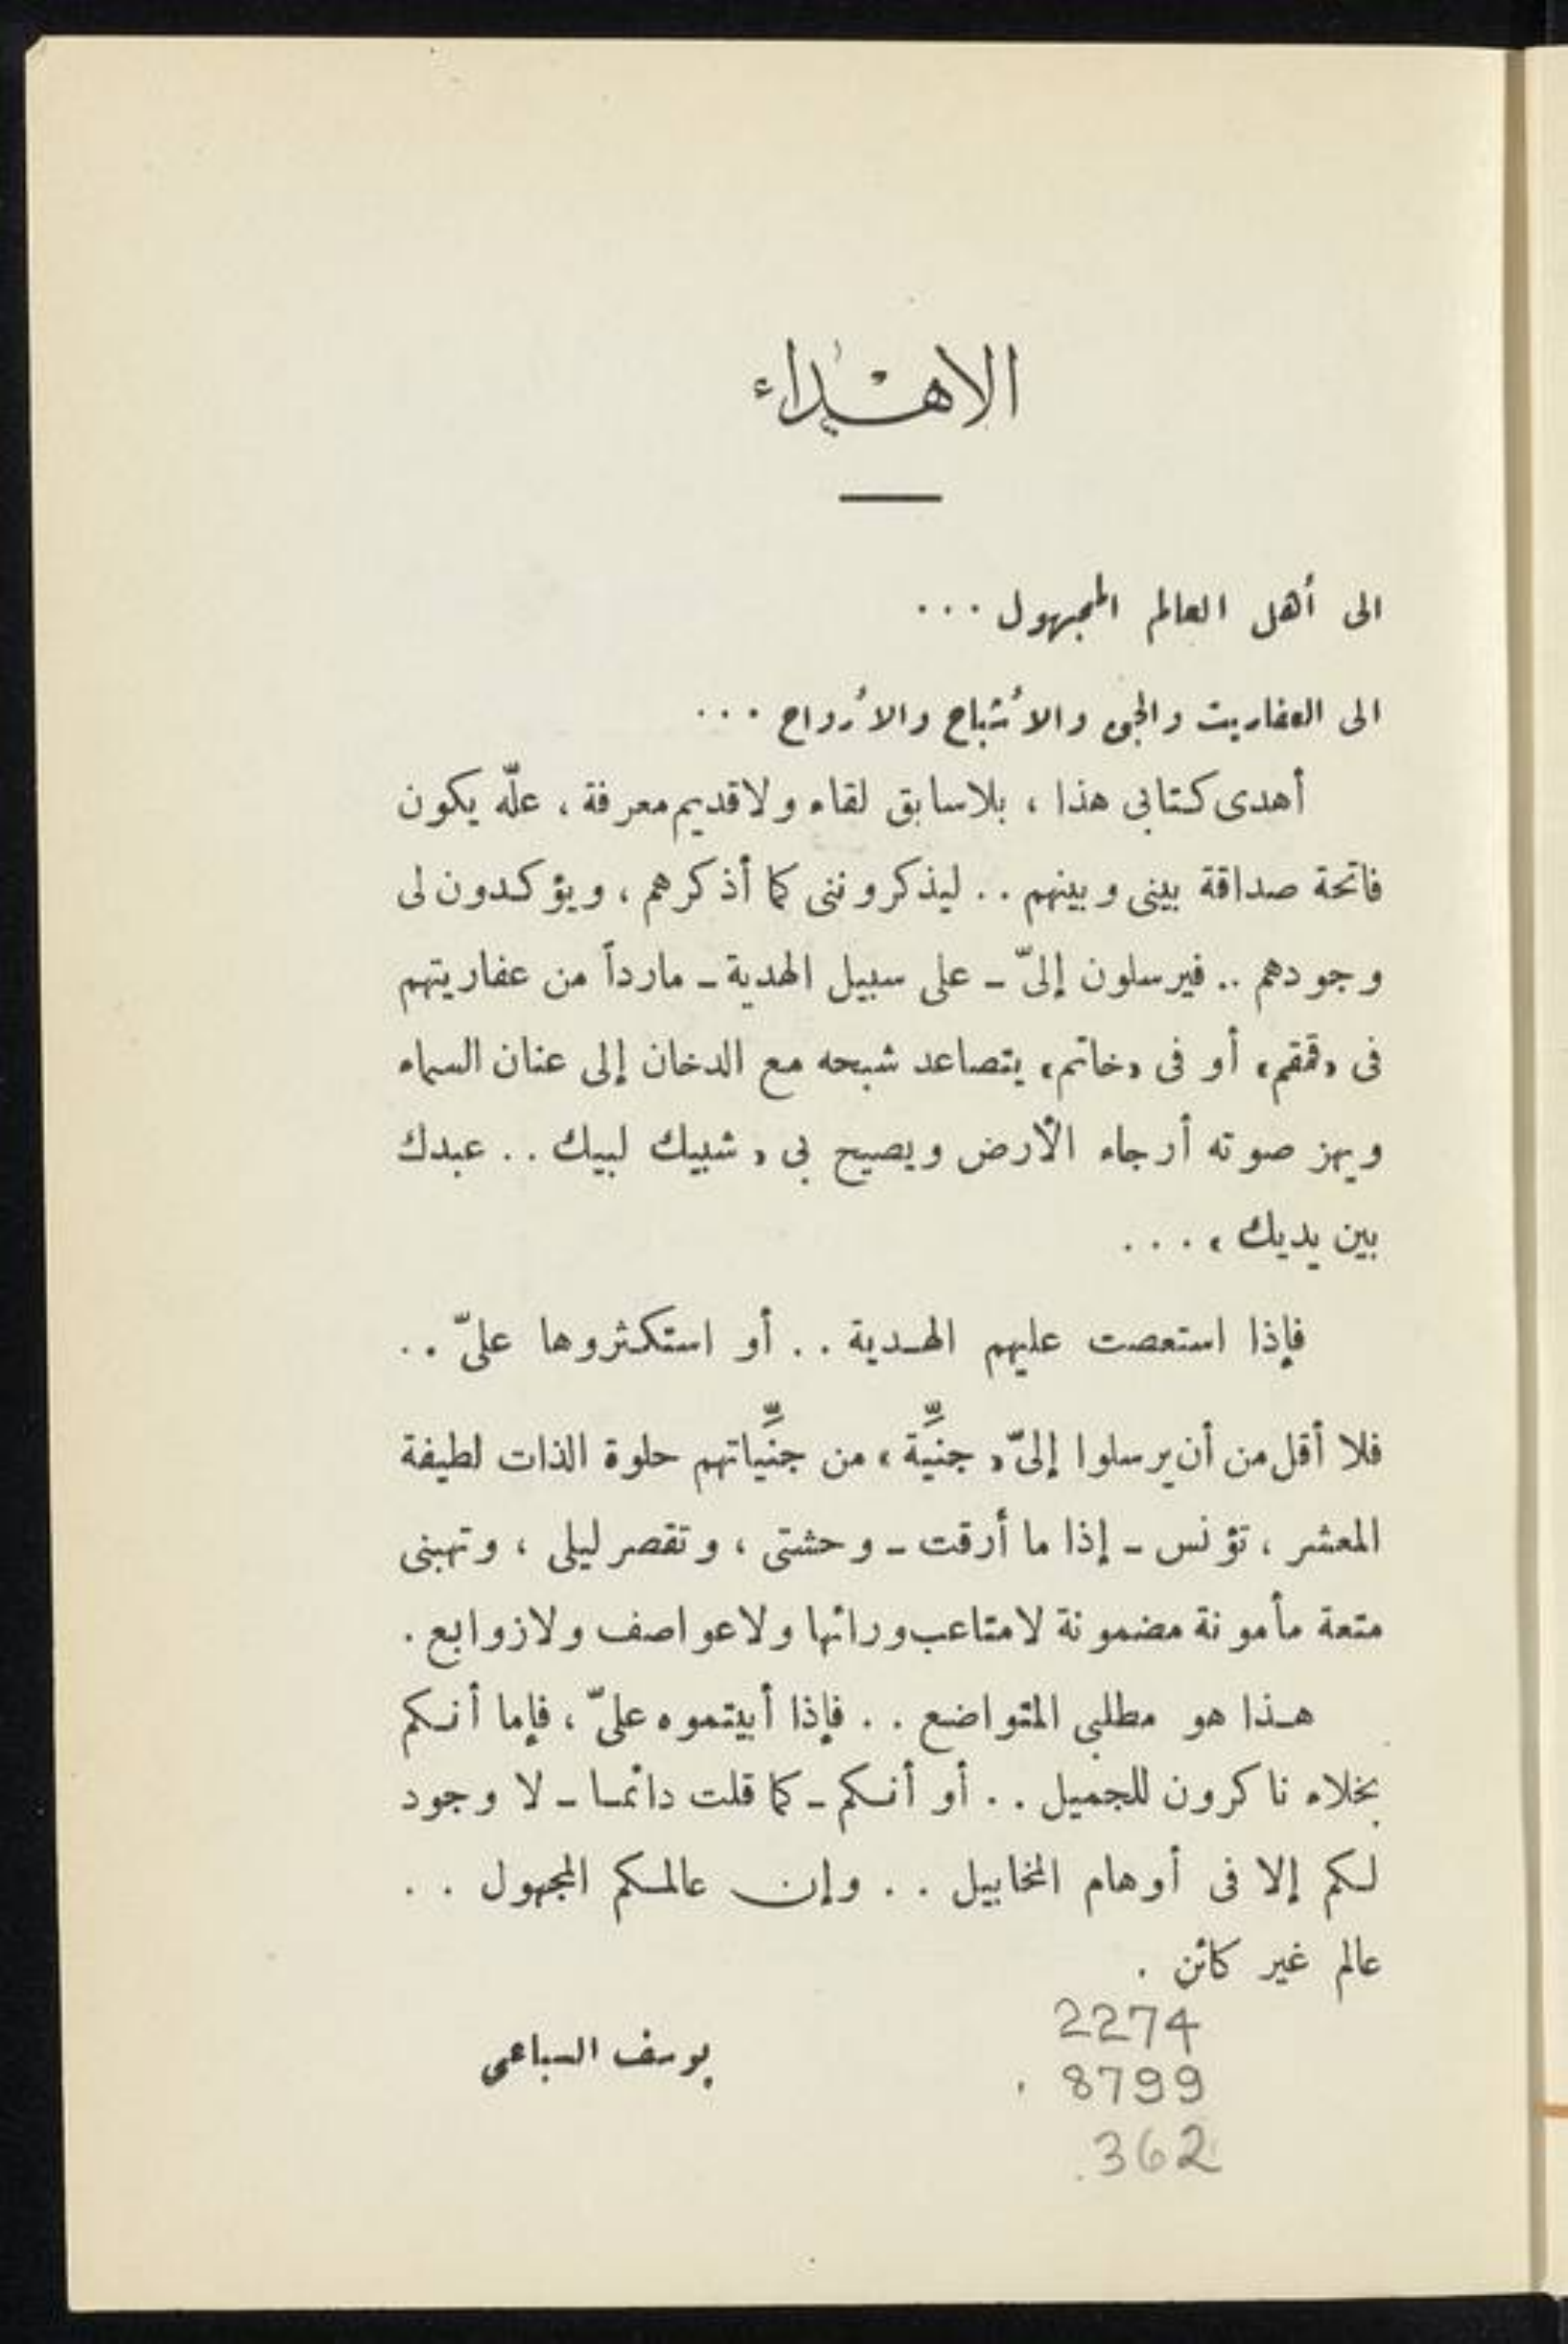 الاهداء
الى أهل العالم المجهول ...
الى العفاريت والجن والأشباح والأرواح ...
أهدى كتابى هذا ، بلا سابق لقاء ولا قديم معرفة ، علّه يكون
فاتحة صداقة بينى وبينهم .. ليذكروننى كما أذكرهم ، ويؤكدون لى
وجودهم .. فيرسلون إلىّ - على سبيل الهدية - مارداً من عفاريتهم
فى «قمقم» أو فى «خاتم» يتصاعد شبحه مع الدخان إلى عنان السماء
ويهز صوته أرجاء الأرض ويصيح بى « شبيك لبيك .. عبدك
بين يديك » ...
فإذا استعصت عليهم الهدية .. أو استكثروها علىّ ..
فلا أقل من أن يرسلوا إلىّ « جنِّيَّة » من جنِّيَّاتهم حلوة الذات لطيفة
المعشر ، تؤنس - إذا ما أرقت - وحشتى ، وتقصر ليلى ، وتهبنى
متعة مأمونة مضمونة لا متاعب ورائها ولا عواصف ولا زوابع .
هذا هو مطلبى المتواضع .. فإذا أبيتموه علىّ ، فإما أنكم
بخلاء ناكرون للجميل .. أو أنكم - كما قلت دائما - لا وجود
لكم إلا فى أوهام المخابيل .. وإن عالمكم المجهول ..
عالم غير كائن .
2274
يوسف السباعى
8799
362